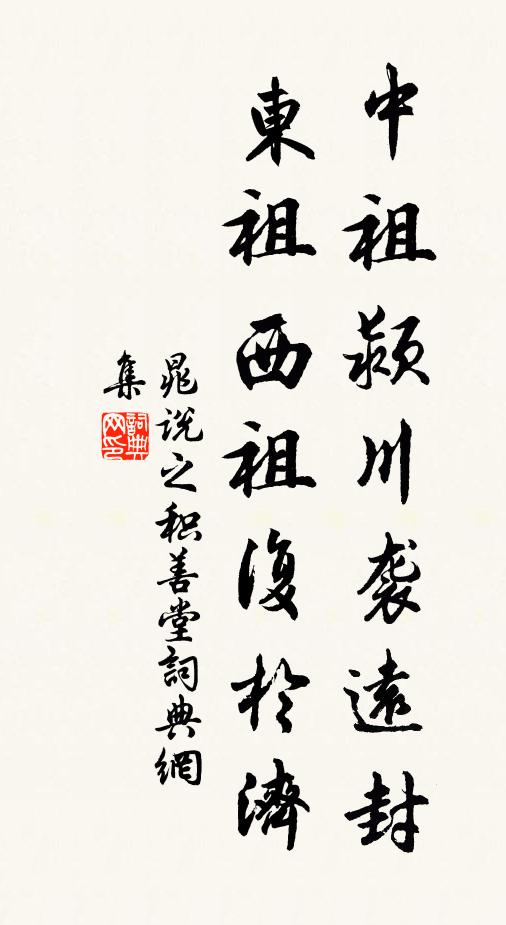 中祖颍川袭遠封
東祖西祖復於濟
晁说之积善堂詞典網
集
詞典
网印